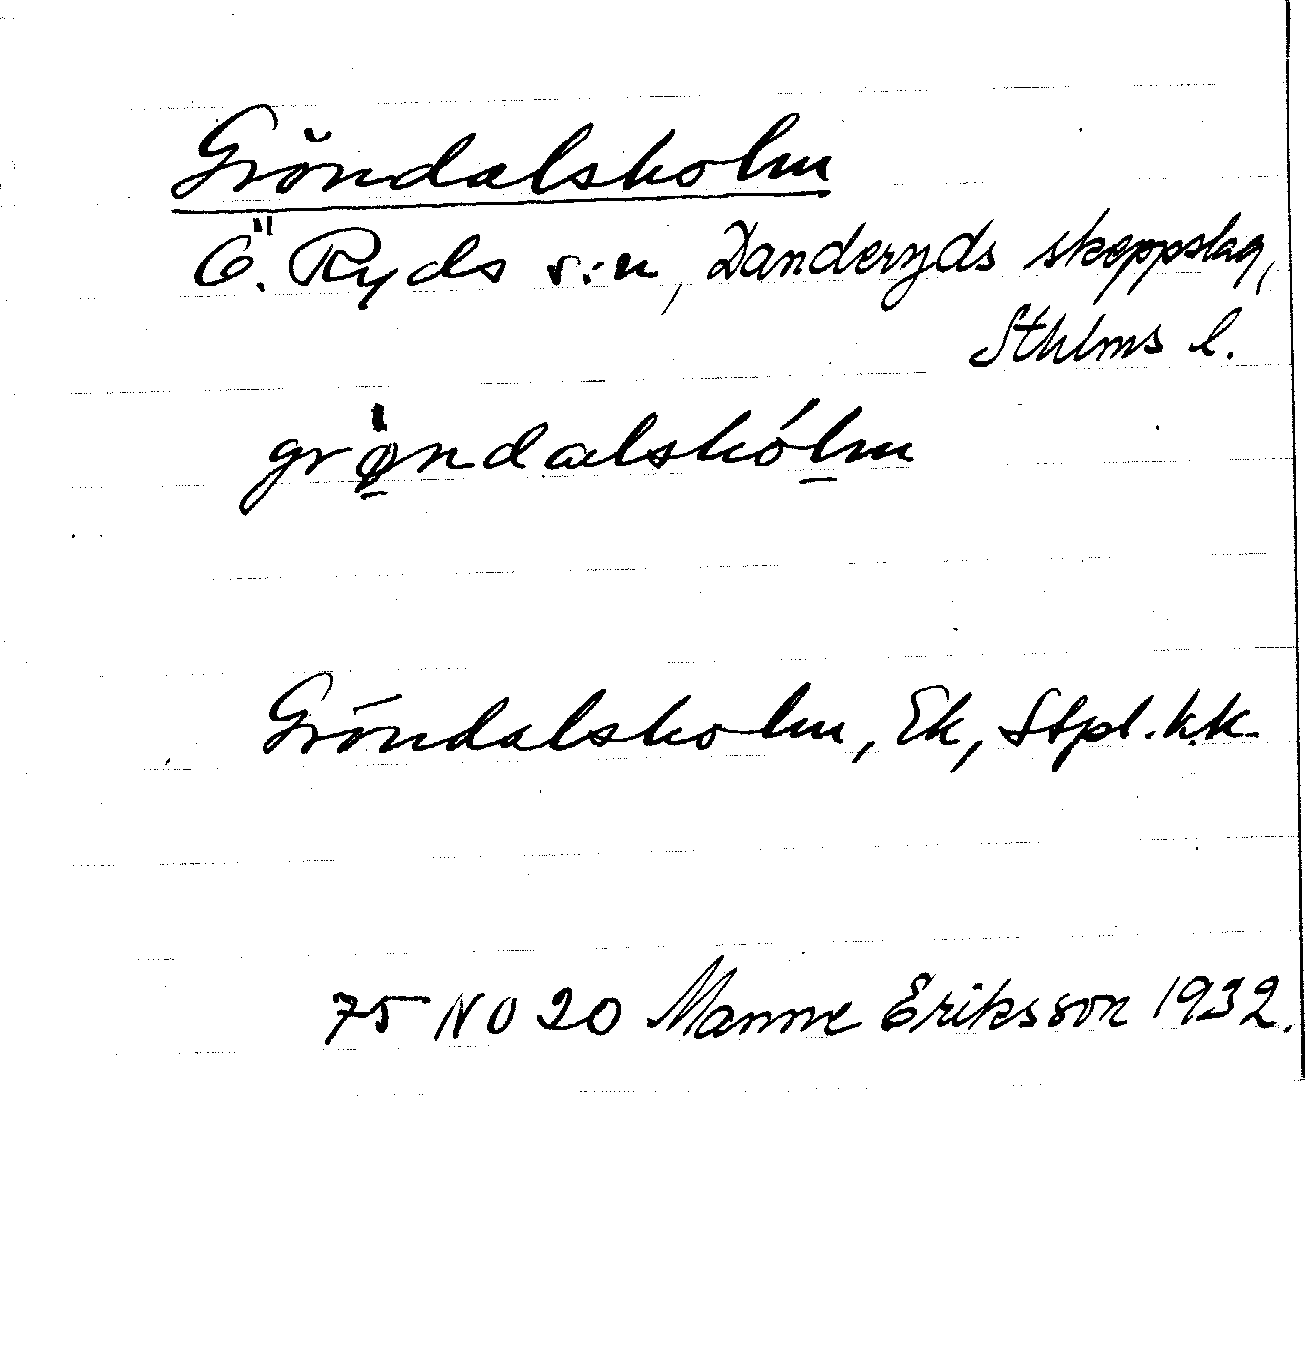 Gröndalsholm
Ö. Ryds s:n, Danderyds skeppslag,
Sthlms l.
grø̀ndalshólm
Gröndalsholm, Ek, Stpl. k.k.
75 NO 20 Manne Eriksson 1932.